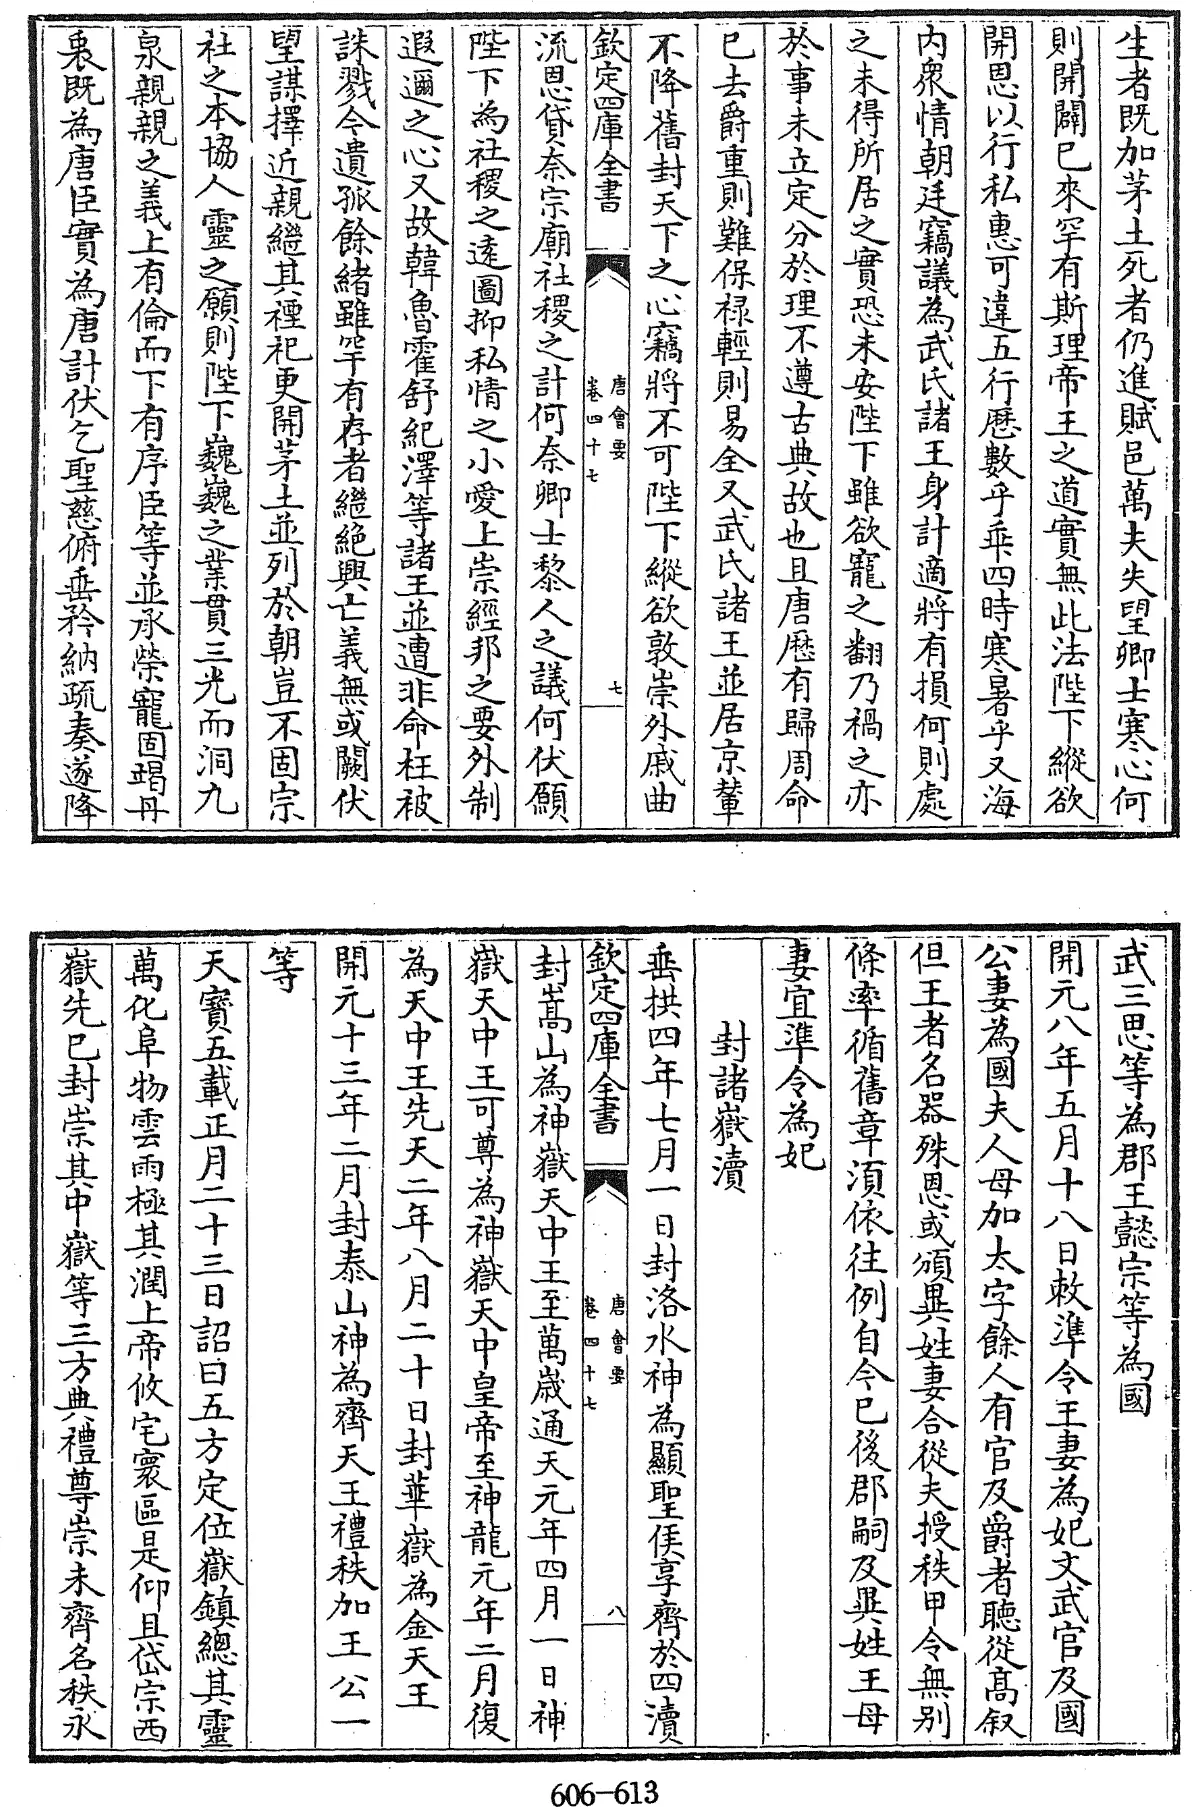 生者既加茅土死者仍進賦邑萬夫失望卿士寒心何
則開闢已來罕有斯理帝王之道實無此法陛下縱欲
開恩以行私惠可違五行厯數乎乖四時寒暑乎又海
内衆情朝廷竊議為武氏諸王身計適將有損何則處
之未得所居之實恐未安陛下雖欲寵之翻乃禍之亦
於事未立定分於理不遵古典故也且唐厯有歸周命
已去爵重則難保禄輕則易全又武氏諸王並居京輦
不降舊封天下之心竊將不可陛下縱欲敦崇外戚曲
欽定四庫全書
唐會要
卷四十七
七
流恩貸奈宗廟社稷之計何奈卿士黎人之議何伏願
陛下為社稷之逺圖抑私情之小愛上崇經邦之要外制
遐邇之心又故韓魯霍舒紀澤等諸王並遭非命枉被
誅戮今遺孤餘緒雖罕有存者繼絶興亡義無或闕伏
望謀擇近親繼其禋祀更開茅土並列於朝豈不固宗
社之本協人靈之願則陛下巍巍之業貫三光而洞九
泉親親之義上有倫而下有序臣等並承榮寵固竭丹
衷既為唐臣實為唐計伏乞聖慈俯垂矜納疏奏遂降
武三思等為郡王懿宗等為國
開元八年五月十八日敕準令王妻為妃文武官及國
公妻為國夫人母加太字餘人有官及爵者聽從高叙
但王者名器殊恩或頒異姓妻合從夫授秩甲令無别
條率循舊章須依往例自今已後郡嗣及異姓王母
妻宜準令為妃
封諸嶽瀆
垂拱四年七月一日封洛水神為顯聖侯享齊於四瀆
欽定四庫全書
唐會要
卷四十七
八
封嵩山為神嶽天中王至萬歲通天元年四月一日神
嶽天中王可尊為神嶽天中皇帝至神龍元年二月復
為天中王先天二年八月二十日封華嶽為金天王
開元十三年二月封泰山神為齊天王禮秩加王公一
等
天寶五載正月二十三日詔曰五方定位嶽鎮總其靈
萬化阜物雲雨極其潤上帝攸宅寰區是仰且岱宗西
嶽先已封崇其中嶽等三方典禮尊崇未齊名秩永
606-613